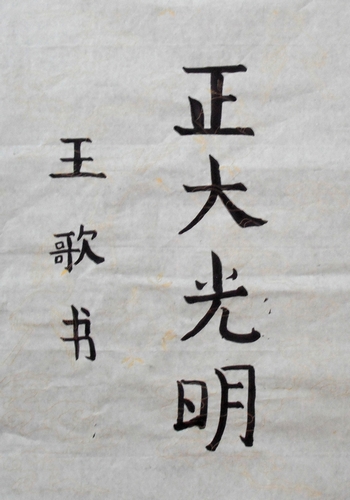 正大光明
王歌书